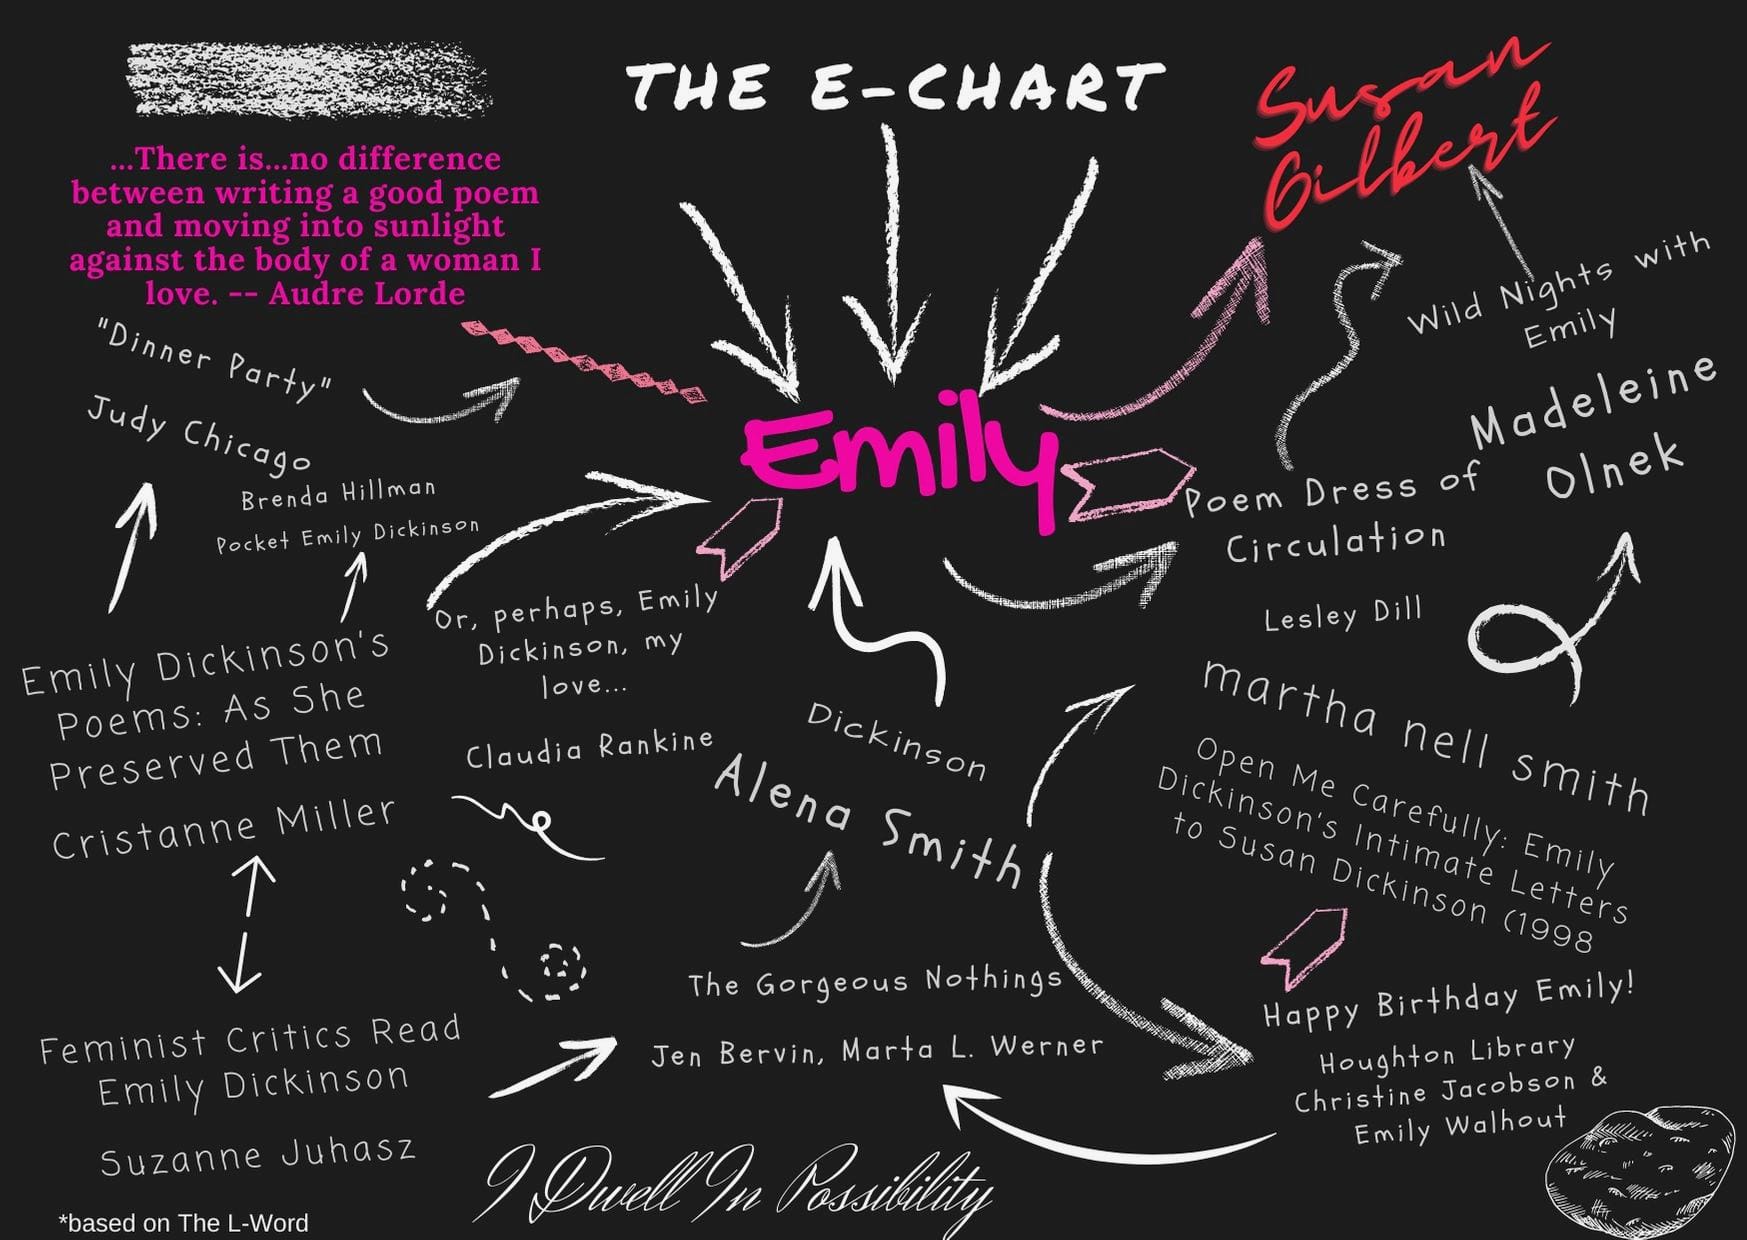 THE E-CHART
Susan
Gilbert
...There is...no difference
between writing a good poem
and moving into sunlight
against the body of a woman I
love. -- Audre Lorde
"Dinner Party"
Judy Chicago
Brenda Hillman
Pocket Emily Dickinson
Emily
Wild Nights with
Emily
Madeleine
Olnek
Poem Dress of
Circulation
Lesley Dill
Or, perhaps, Emily
Dickinson, my
love...
Claudia Rankine
Emily Dickinson's
Poems: As She
Preserved Them
Cristanne Miller
Dickinson
Alena Smith
martha nell smith
Open Me Carefully: Emily
Dickinson's Intimate Letters
to Susan Dickinson (1998
The Gorgeous Nothings
Jen Bervin, Marta L. Werner
Happy Birthday Emily!
Houghton Library
Christine Jacobson &
Emily Walhout
Feminist Critics Read
Emily Dickinson
Suzanne Juhasz
I Dwell In Possibility
*based on The L-Word